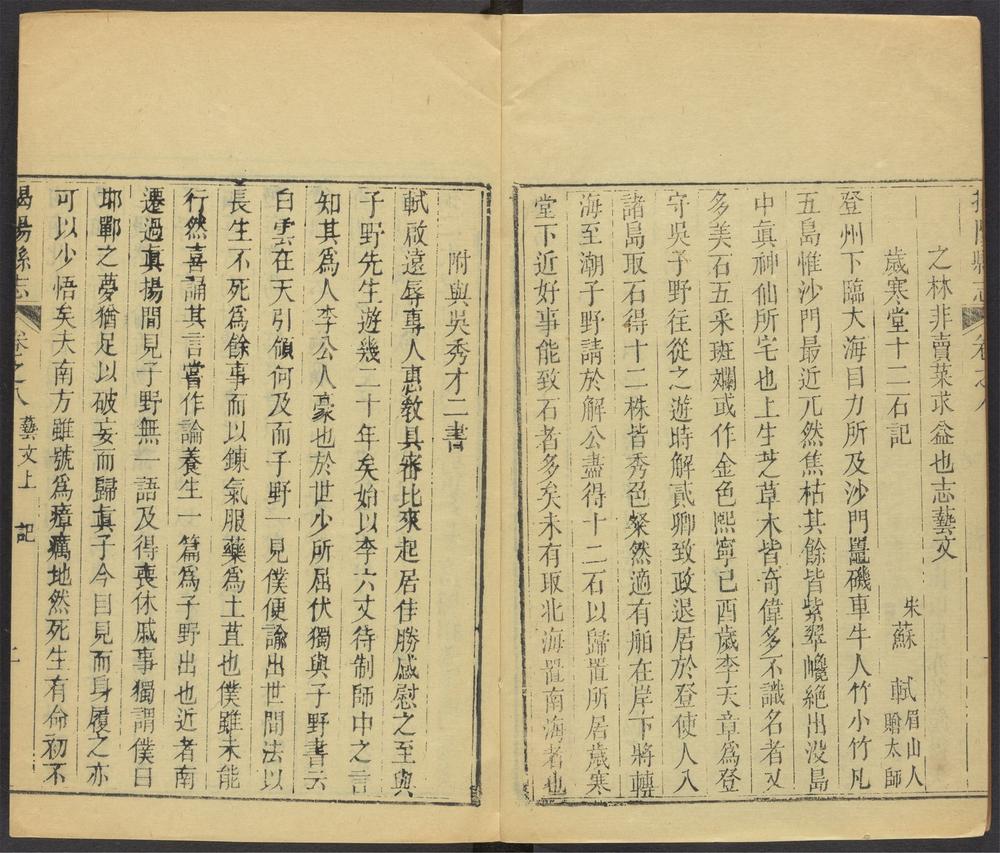 揭陽縣志 卷之八
之林非賣菜求益也志藝文
歲寒堂十二石記
宋蘇軾眉山人贈太師
登州下臨大海目力所及沙門鼉磯車牛人竹小竹凡
五島惟沙門最近兀然焦枯其餘皆紫翠巉絕出沒島
中眞神仙所宅也上生芝草木皆奇偉多不識名者又
多美石五釆斑斕或作金色熙寧已酉歲李天章爲登
守吳子野往從之遊時解貳卿致政退居於登使人入
諸島取石得十二株皆秀色粲然適有舶在岸下將轉
海至潮子野請於解公盡得十二石以歸置所居歲寒
堂下近好事能致石者多矣未有取北海置南海者也
附與吳秀才二書
軾啟遠辱專人惠敎具審比來起居佳勝感慰之至與
子野先生遊幾二十年矣始以李六丈待制師中之言
知其爲人李公人豪也於世少所屈伏獨與子野書云
白雲在天引領何及而子野一見僕便諭出世間法以
長生不死爲餘事而以鍊氣服藥爲土苴也僕雖未能
行然喜誦其言嘗作論養生一篇爲子野出也近者南
遷過眞揚間見子野無一語及得喪休戚事獨謂僕曰
邯鄲之夢猶足以破妄而歸眞子今目見而身履之亦
可以少悟矣夫南方雖號爲瘴癘地然死生有命初不
揭陽縣志 卷之八 藝文上 記 二